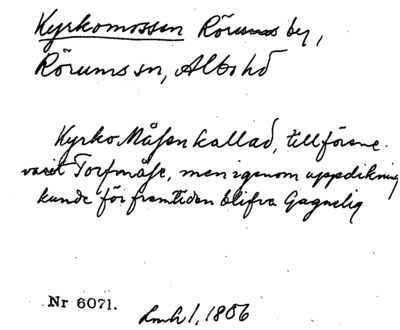 Kyrkomossen Rörums by,
Rörums sn, Albo hd
Kyrko Måsen kallad, tillförene
varit Torfmåse, men igenom uppdikning
kunde för framtiden blifva Gagnelig
Nr 6071.
Lmh 1, 1806